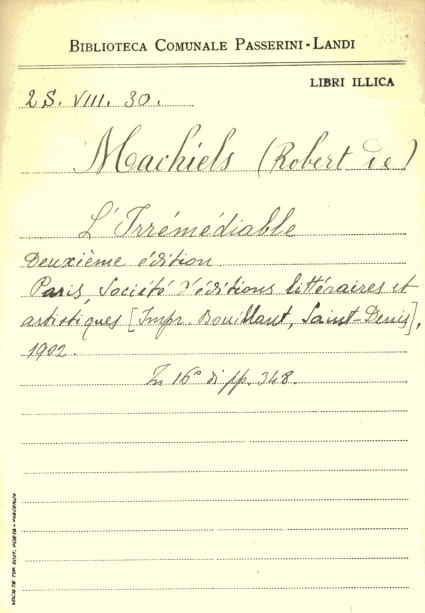 BIBLIOTECA COMUNALE PASSERINI-LANDI
LIBRI ILLICA
2S. VIII. 30.
Machiels (Robert de)
L'Irrémédiable
Deuxième édition
Paris, Société d'éditions littéraires et
artistiques [Impr. Bouillant, Saint-Denis],
1902.
In 16° di pp. 348.